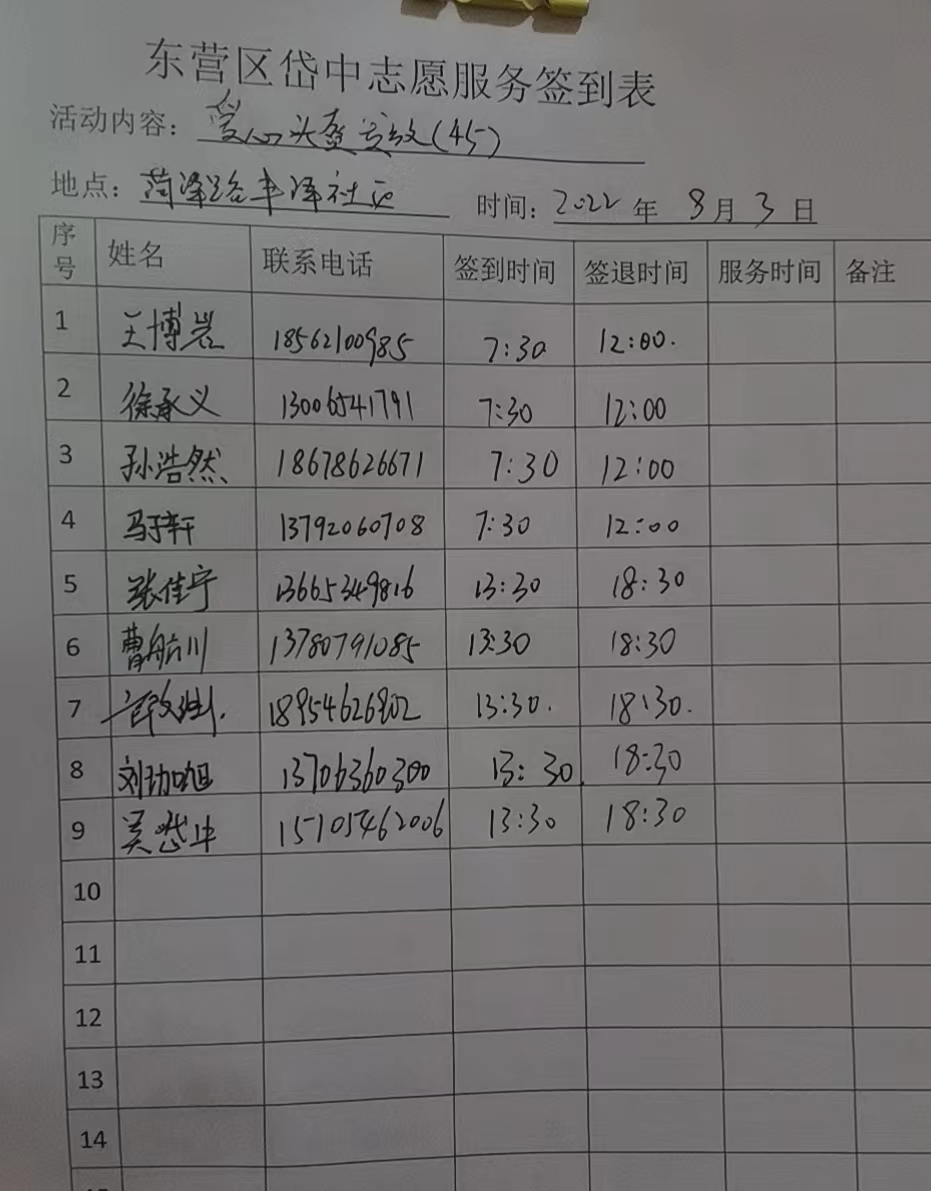 东营区岱中志愿服务签到表
活动内容：爱心头盔发放(45)
地点：菏泽路丰泽社区 时间：2022年 8月 3日
序号 姓名 联系电话 签到时间 签退时间 服务时间 备注
1 王博岩 18562100985 7:30 12:00.
2 徐承义 13006541791 7:30 12:00
3 孙浩然 18678626671 7:30 12:00
4 马于轩 13792060708 7:30 12:00
5 张佳宁 13665349816 13:30 18:30
6 曹航川 13780791085 13:30 18:30
7 18954626902 13:30. 18:30.
8 刘劲旭 13706360300 13:30 18:30
9 吴岱中 15105462006 13:30 18:30
10
11
12
13
14